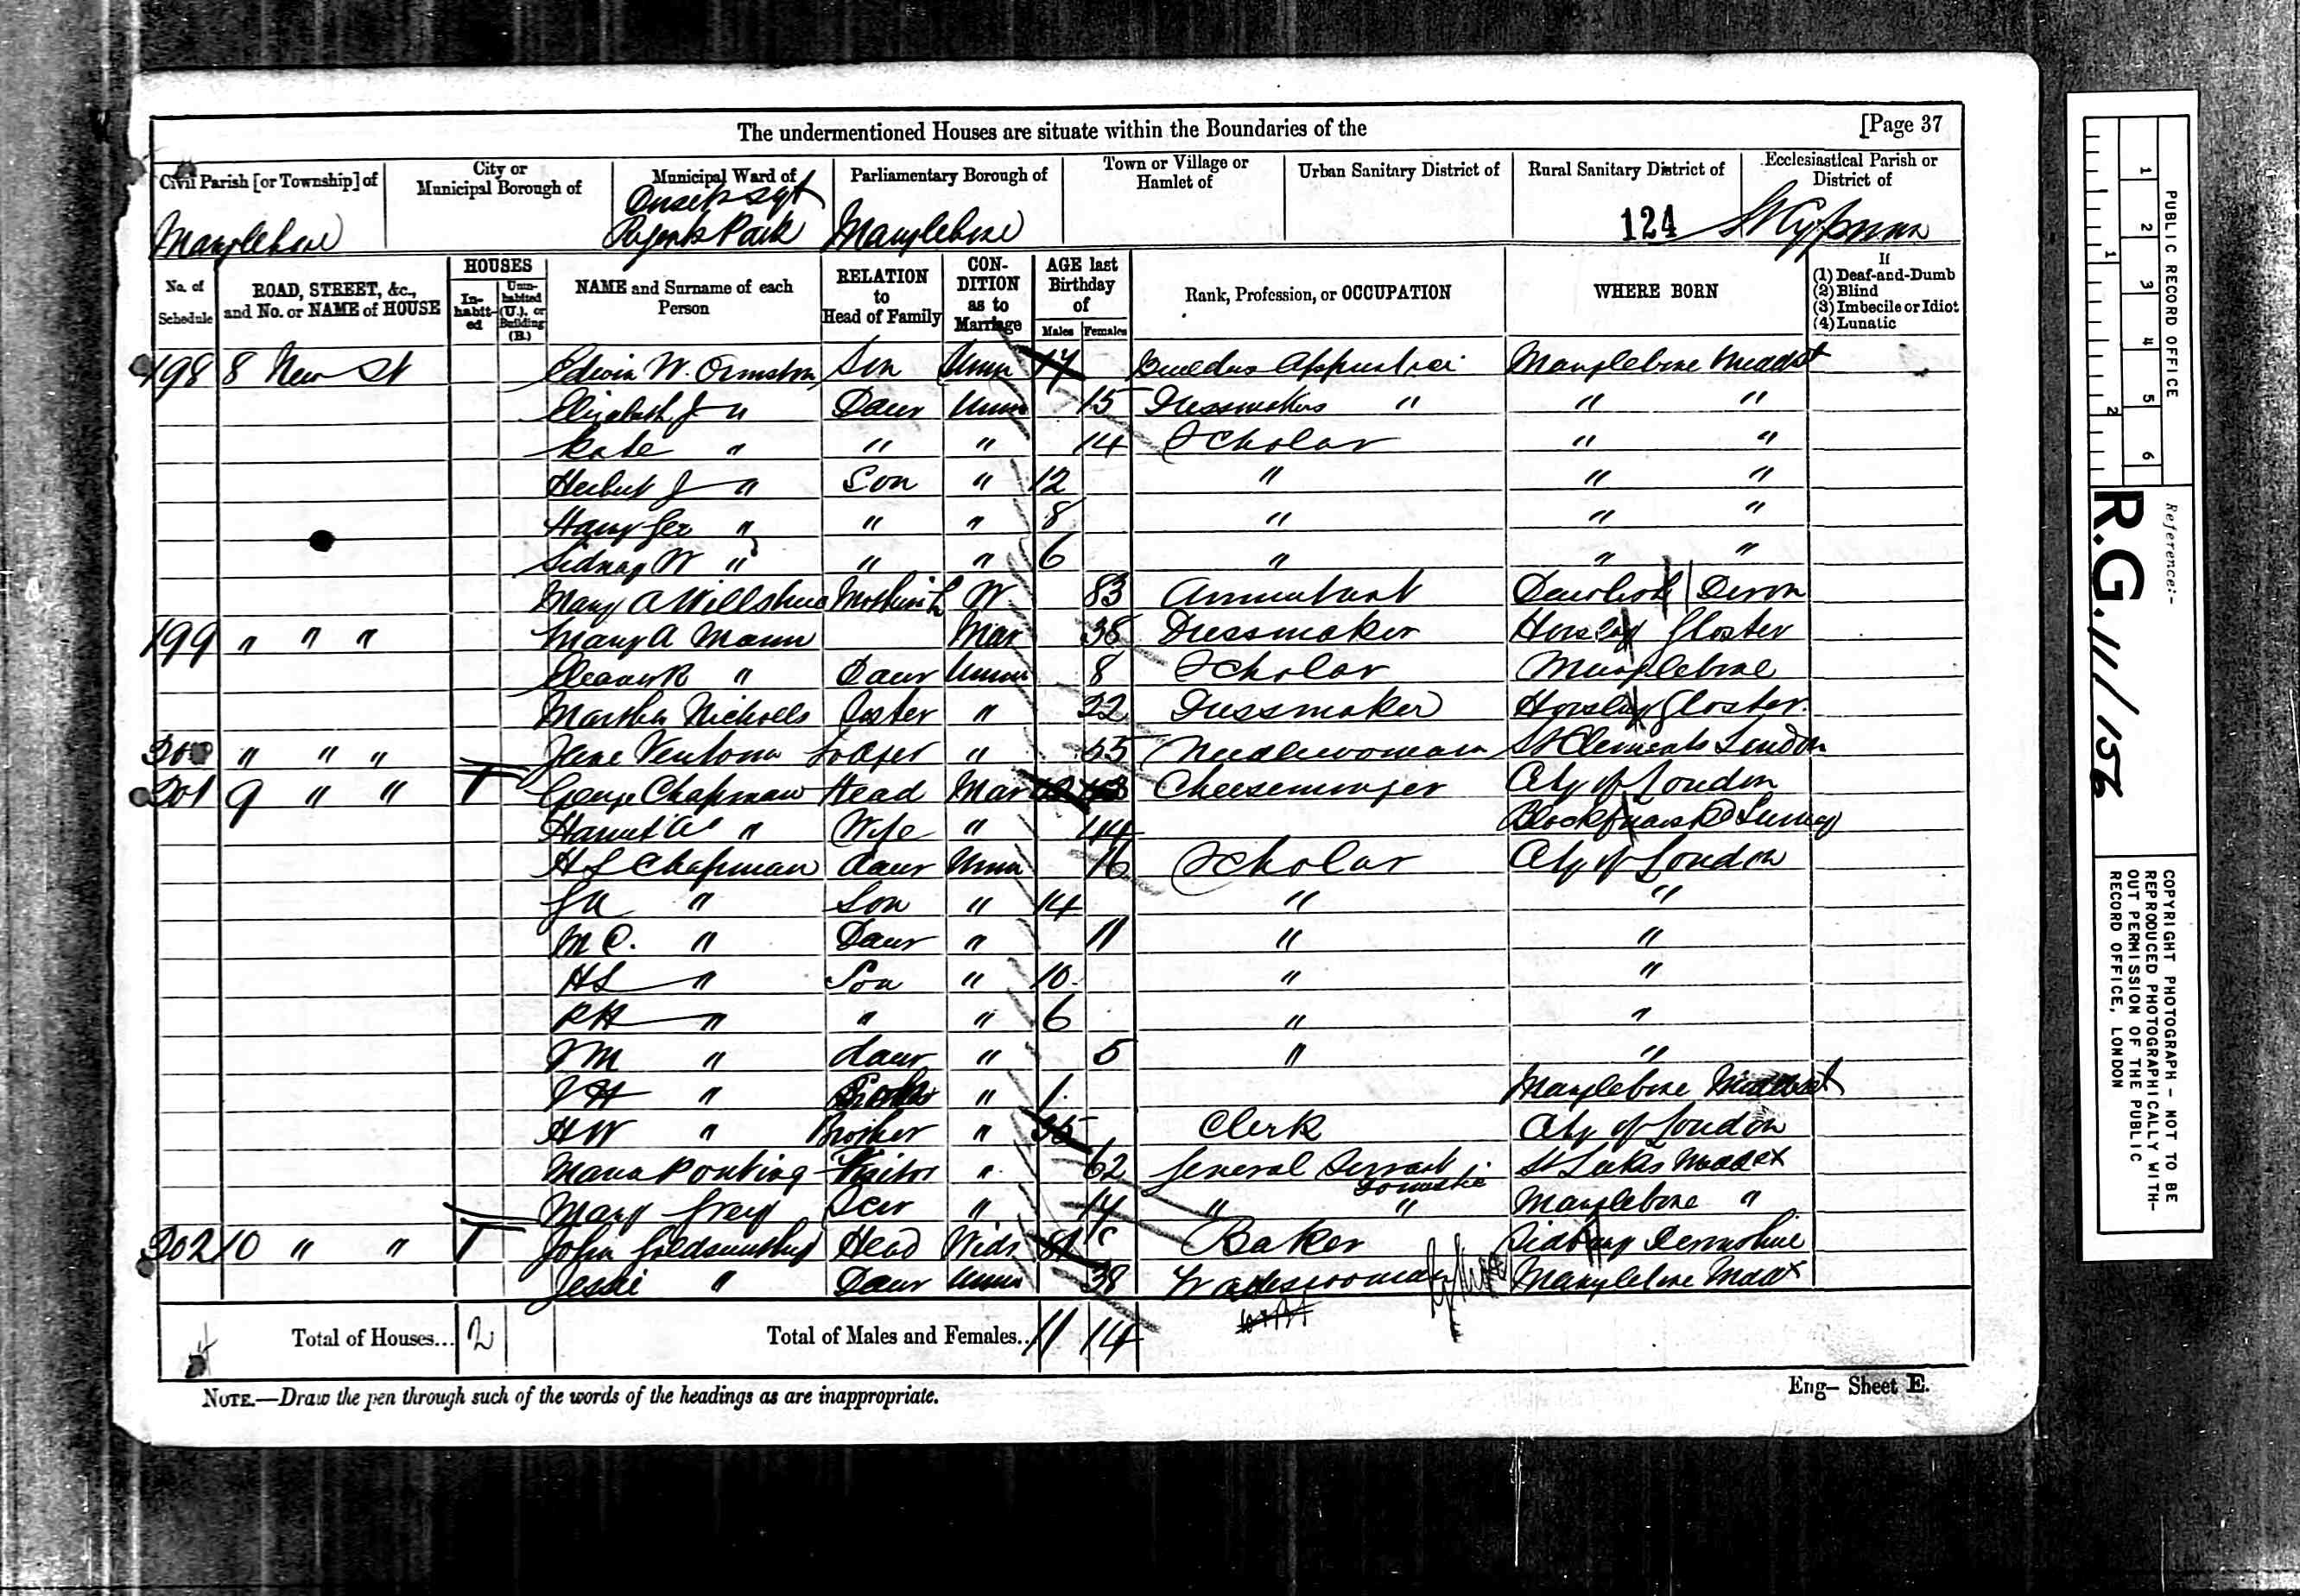 The undermentioned Houses are situate within the Boundaries of the
[Page 37
Civil Parish [or Township] of
City or Municipal Borough of
Municipal Ward of
Parliamentary Borough of
Town or Village or Hamlet of
Urban Sanitary District of
Rural Sanitary District of
Ecclesiastical Parish or District of
Marylebone
Regents Park
Marylebone
124
St Cyprian
No. of Schedule
ROAD, STREET, &c., and No. or NAME of HOUSE
HOUSES
In-habit-ed
Unin-habited (U.), or Building (B.)
NAME and Surname of each Person
RELATION to Head of Family
CON-DITION as to Marriage
AGE last Birthday of
Males
Females
Rank, Profession, or OCCUPATION
WHERE BORN
If
(1) Deaf-and-Dumb
(2) Blind
(3) Imbecile or Idiot
(4) Lunatic
198 8 New St Edwin W. Ormston Son Unm 17 Apprentice Marylebone Middst
Elizabeth J " Daur Unm 15 Dressmakers " " "
Kate " " " 14 Scholar " "
Herbert J " Son " 12 " " "
Harry Geo " " " 8 " " "
Sidney W " " " 6 " " "
Mary A Willshire W 83 Annuitant Devon
199 " " " Mary A Mann Mar 38 Dressmaker Horsley Gloster
Eleanor R " Daur Unm 8 Scholar Marylebone
Martha Nicholls Sister " 22 Dressmaker Horsley Gloster
200 " " " Jane Lodger " 55 Needlewoman St Clements London
201 9 " " 1 George Chapman Head Mar 48 Cheesemonger City of London
Harriet " Wife " 44 Blackfriars Rd Surrey
H L Chapman daur Unm 16 Scholar City of London
" Son " 14 " "
M C. " Daur " 11 " "
H S " Son " 10 " "
R H " " " 6 " "
V M " daur " 5 " "
V H " " 1 Marylebone Middlesex
H W " Brother " 35 Clerk City of London
Maria Ponting Visitor " 62 General Servant Domestic St Lukes Middex
Mary Grey Serv " 14 " " Marylebone "
202 10 " " 1 John Goldsworthy Head Widr 81 Baker Sidbury Devonshire
Jessie " Daur Unm 38 Tradeswoman Marylebone Middx
Total of Houses... 2
Total of Males and Females.. 11 14
NOTE.—Draw the pen through such of the words of the headings as are inappropriate.
Eng— Sheet E.
PUBLIC RECORD OFFICE
1 2 3 4 5 6
1 2
Reference:-
R.G. 11/156
COPYRIGHT PHOTOGRAPH - NOT TO BE
REPRODUCED PHOTOGRAPHICALLY WITH-
OUT PERMISSION OF THE PUBLIC
RECORD OFFICE, LONDON